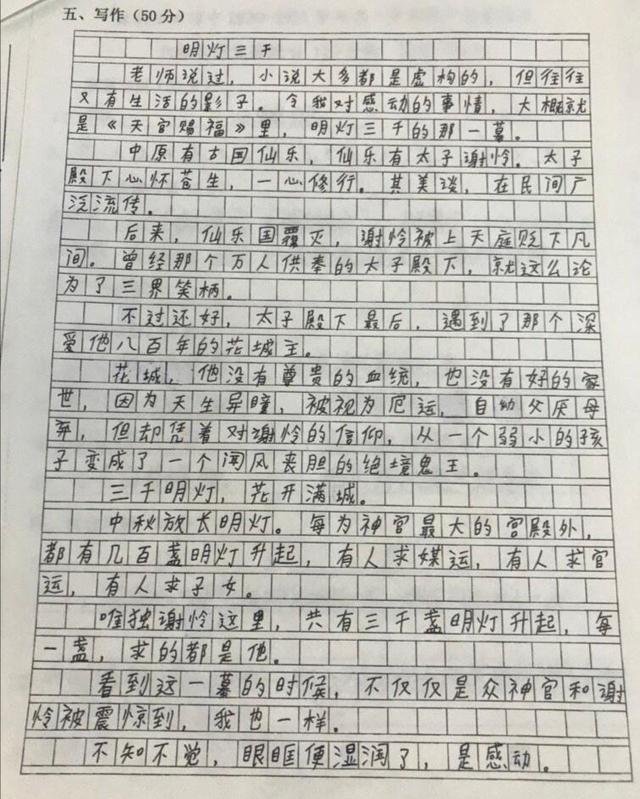 五、写作(50分)
明灯三千
老师说过，小说大多都是虚构的，但往往
又有生活的影子。令我对感动的事情，大概就
是《天官赐福》里，明灯三千的那一幕。
中原有古国仙乐，仙乐有太子谢怜。太子
殿下心怀苍生，一心修行。其美谈，在民间广
泛流传。
后来，仙乐国覆灭，谢怜被上天庭贬下凡
间。曾经那个万人供奉的太子殿下，就这么沦
为了三界笑柄。
不过还好，太子殿下最后，遇到了那个深
爱他八百年的花城主。
花城，他没有尊贵的血统，也没有好的家
世，因为天生异瞳，被视为厄运，自幼父厌母
弃，但却凭着对谢怜的信仰，从一个弱小的孩
子变成了一个闻风丧胆的绝境鬼王。
三千明灯，花开满城。
中秋放长明灯。每为神官最大的宫殿外，
都有几百盏明灯升起，有人求媒运，有人求官
运，有人求子女。
唯独谢怜这里，共有三千盏明灯升起，每
一盏，求的都是他。
看到这一幕的时候，不仅仅是众神官和谢
怜被震惊到，我也一样。
不知不觉，眼眶便湿润了，是感动。